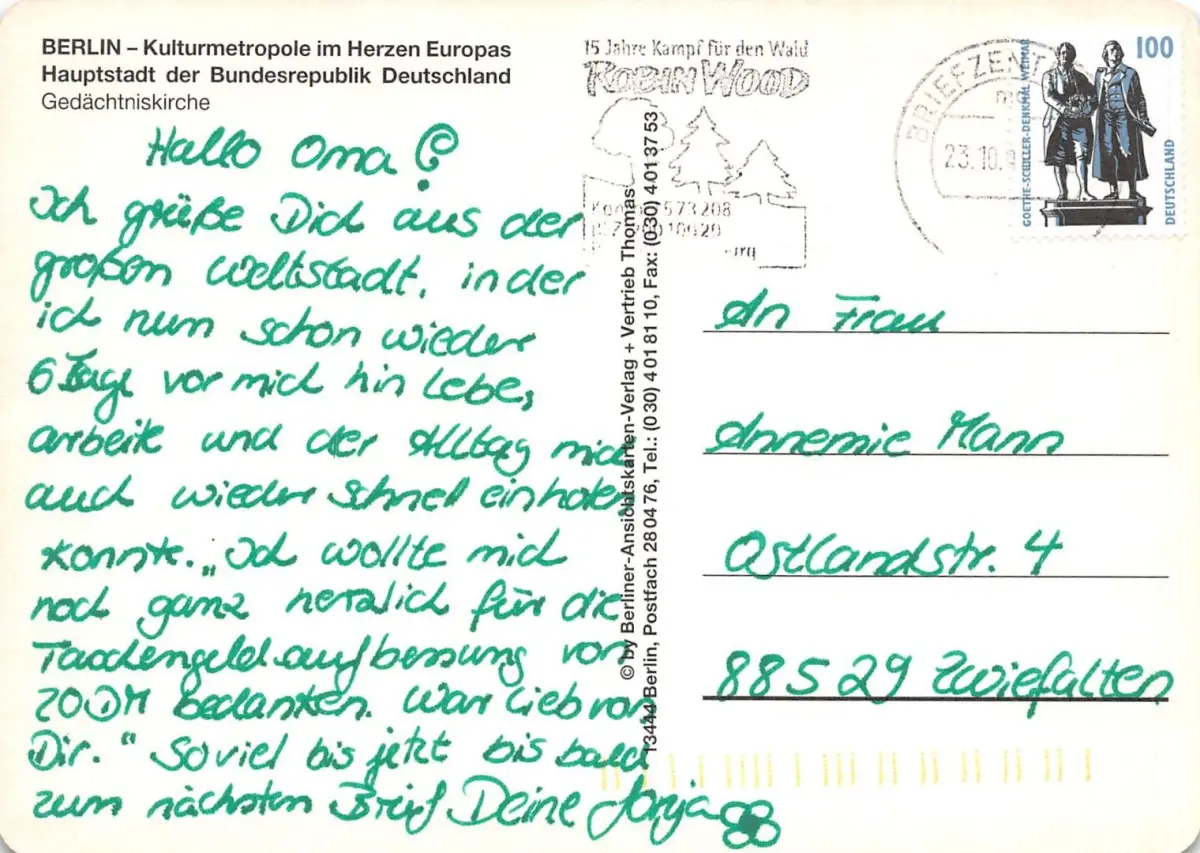 BERLIN – Kulturmetropole im Herzen Europas
Hauptstadt der Bundesrepublik Deutschland
Gedächtniskirche
Hallo Oma!
Ich grüße Dich aus der
großen Weltstadt, in der
ich nun schon wieder
6 Tage vor mich hin lebe,
arbeite und der Alltag mich
auch wieder schnell einholen
konnte. „Ich wollte mich
noch ganz herzlich für die
Taschengeldaufbessung von
20DM bedanken. War lieb von
Dir.“ Soviel bis jetzt bis bald
zum nächsten Brief Deine
© by Berliner-Ansichtskarten-Verlag + Vertrieb Thomas
13444 Berlin, Postfach 28 04 76, Tel.: (0 30) 4 01 81 10, Fax: (0 30) 4 01 37 53
15 Jahre Kampf für den Wald
ROBIN WOOD
573208
BRIEFZENT
23.10.9
100
GOETHE-SCHILLER-DENKMAL WEIMAR
DEUTSCHLAND
An Frau
Annemie Mann
Ostlandstr. 4
88529 Zwiefalten